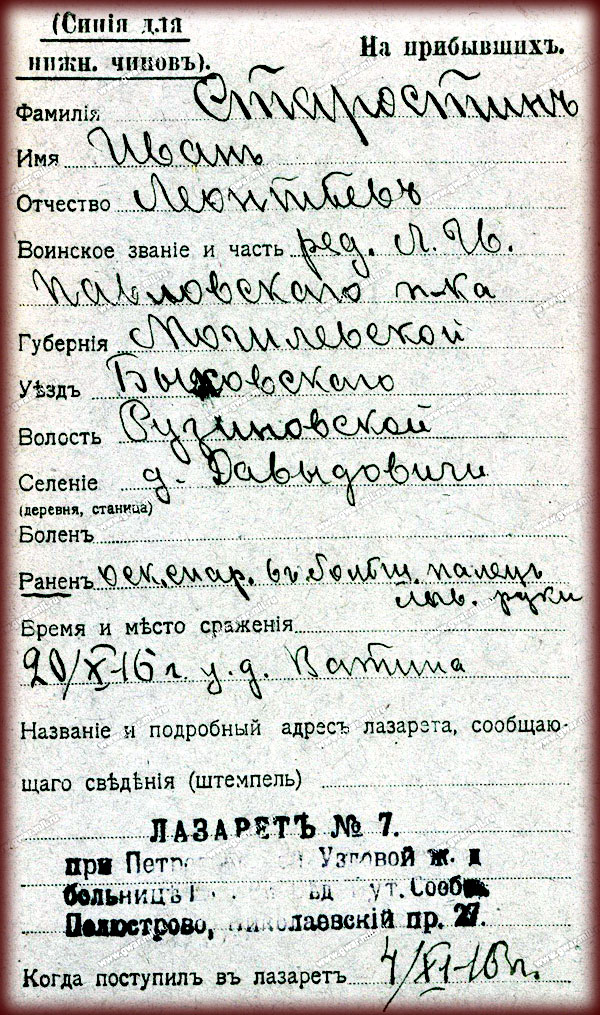 (Синія для
нижн. чиновъ).
На прибывшихъ.
Фамилія Старостинъ
Имя Иванъ
Отчество Леонтьевъ
Воинское званіе и часть ряд. Л. Гв.
Павловскаго п-ка
Губернія Могилевской
Уѣздъ Быховскаго
Волость
Селеніе д. Давыдовичи
(деревня, станица)
Боленъ
Раненъ оск. снар. въ больш. палецъ
лѣв. руки
Время и мѣсто сраженія
20/X-16 г. у д. Ватина
Названіе и подробный адресъ лазарета, сообщаю-
щаго свѣдѣнія (штемпель)
ЛАЗАРЕТЪ № 7.
при Узловой ж. д
больницѣ Пут. Сообщ
Полюстрово, Николаевскій пр. 27.
Когда поступилъ въ лазаретъ 4/XI-16 г.